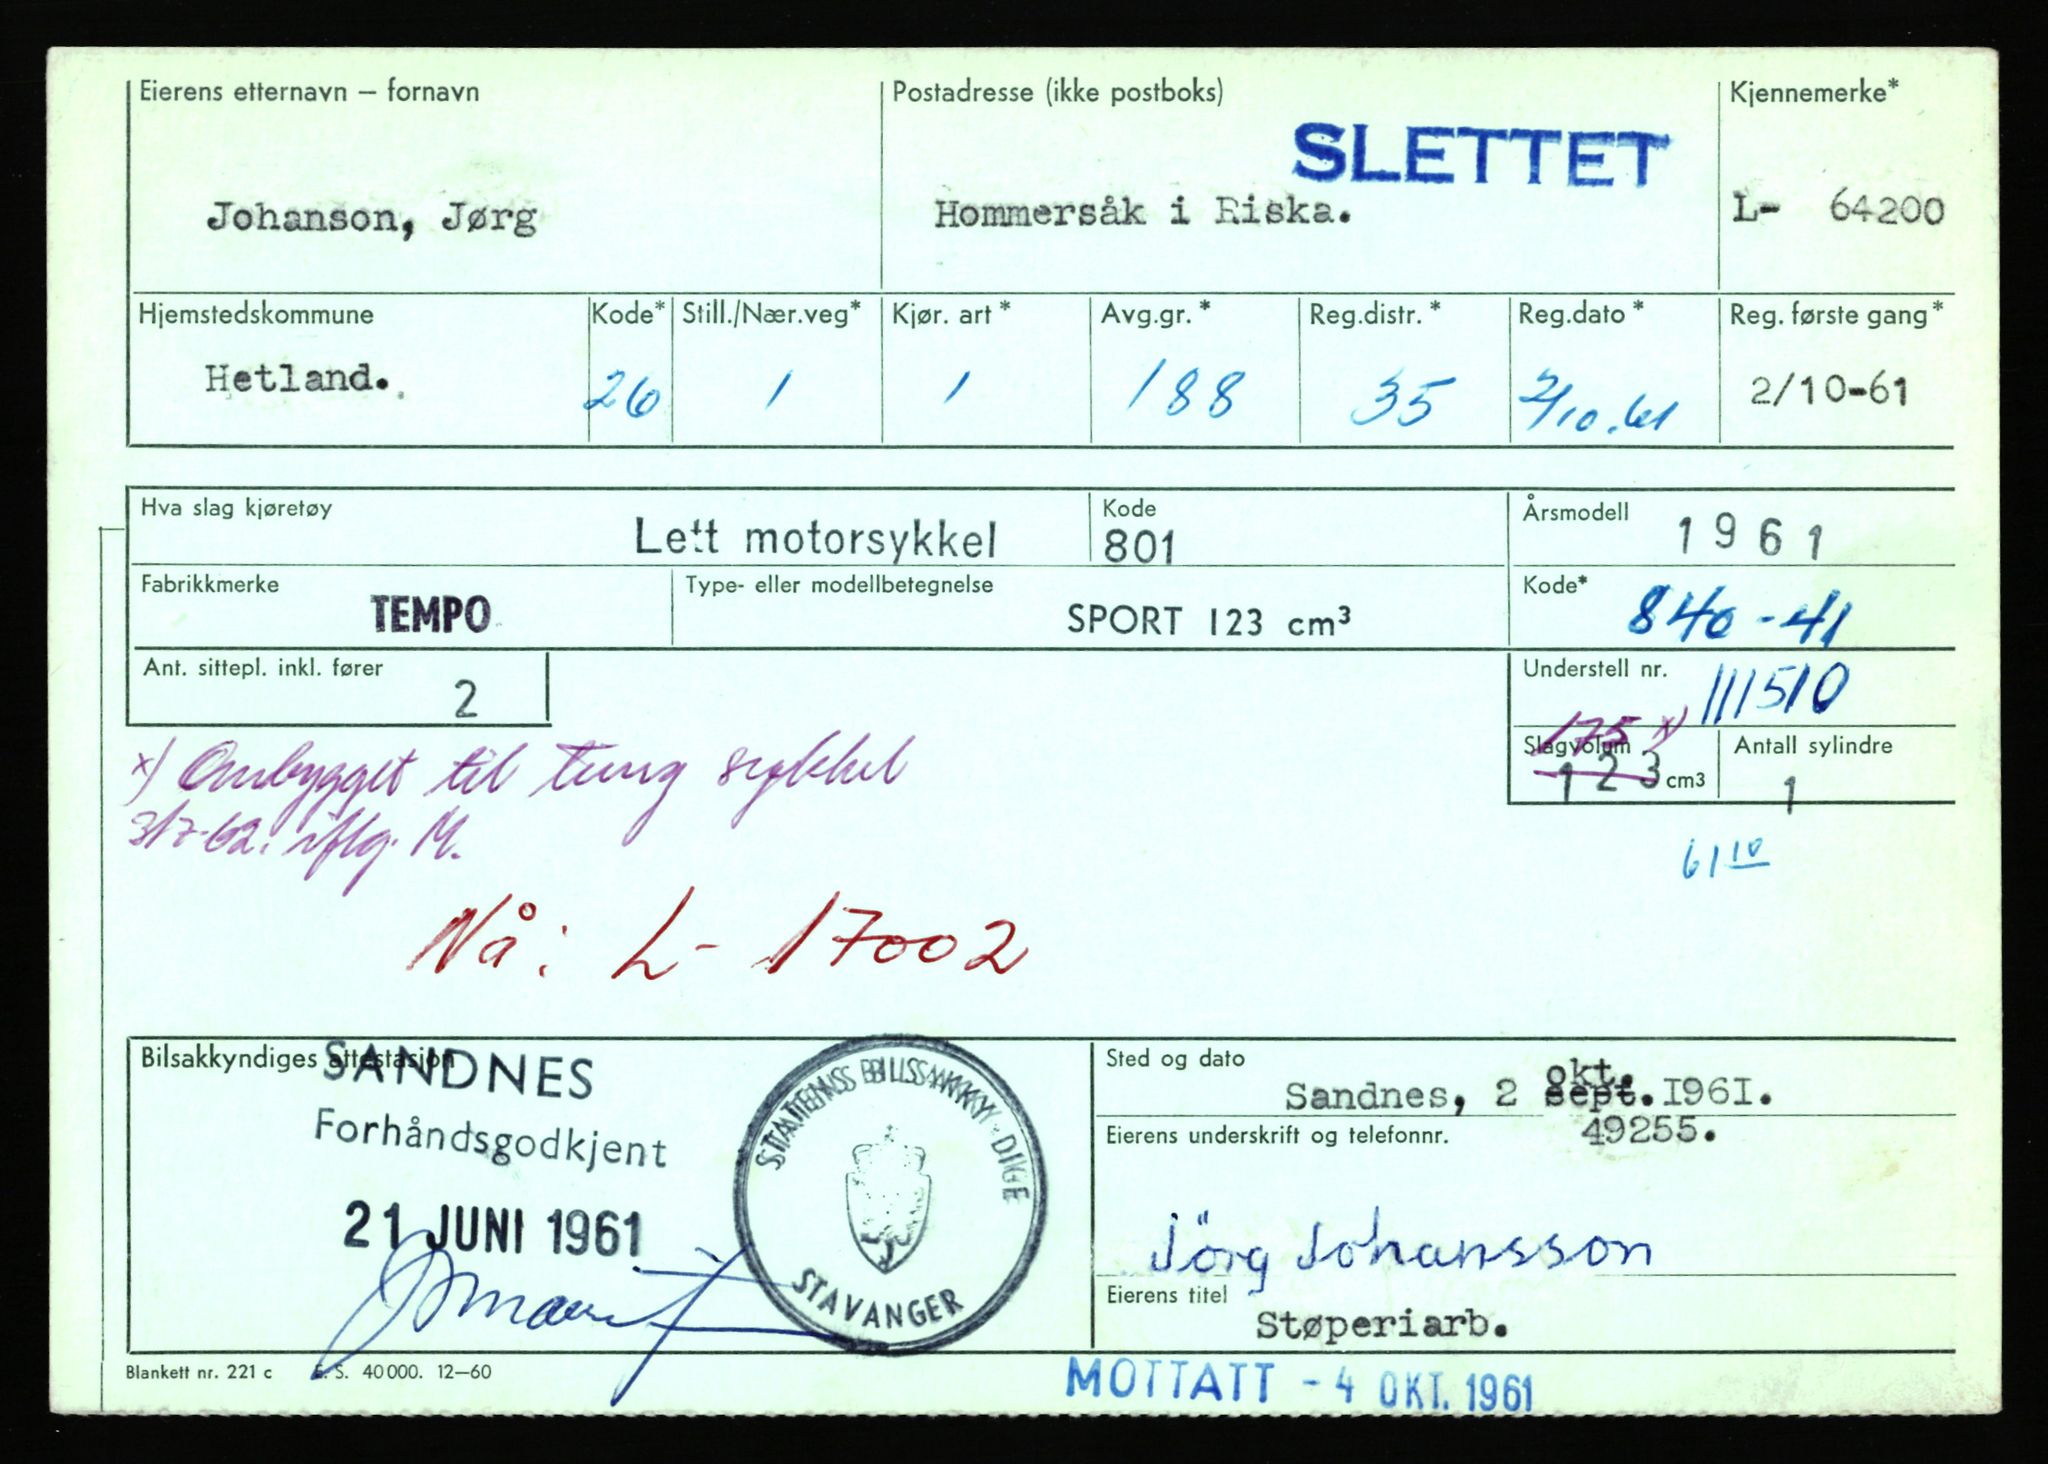 Eierens etternavn – fornavn
Postadresse (ikke postboks)
Kjennemerke*
SLETTET
Johanson, Jørg
Hommersåk i Riska.
L- 64200
Hjemstedskommune
Kode*
Still./Nær.veg*
Kjør. art*
Avg.gr.*
Reg.distr.*
Reg.dato*
Reg. første gang*
Hetland.
26
1
1
188
35
2/10.61
2/10-61
Hva slag kjøretøy
Lett motorsykkel
Kode
801
Årsmodell
1961
Fabrikkmerke
TEMPO
Type- eller modellbetegnelse
SPORT 123 cm³
Kode*
840-41
Ant. sittepl. inkl. fører
2
Understell nr.
111510
175 x)
Slagvolum
123 cm3
Antall sylindre
1
x) Ombygget til tung sykkel
3/7-62. iflg. M.
61 10
Nå: L- 17002
Bilsakkyndiges attestasjon
SANDNES
Forhåndsgodkjent
21 JUNI 1961
STATENS BILSAKKYNDIGE
STAVANGER
Sted og dato
okt.
Sandnes, 2 sept. 1961.
Eierens underskrift og telefonnr.
49255.
Jörg Johansson
Eierens titel
Støperiarb.
Blankett nr. 221 c E. S. 40 000. 12–60
MOTTATT - 4 OKT. 1961